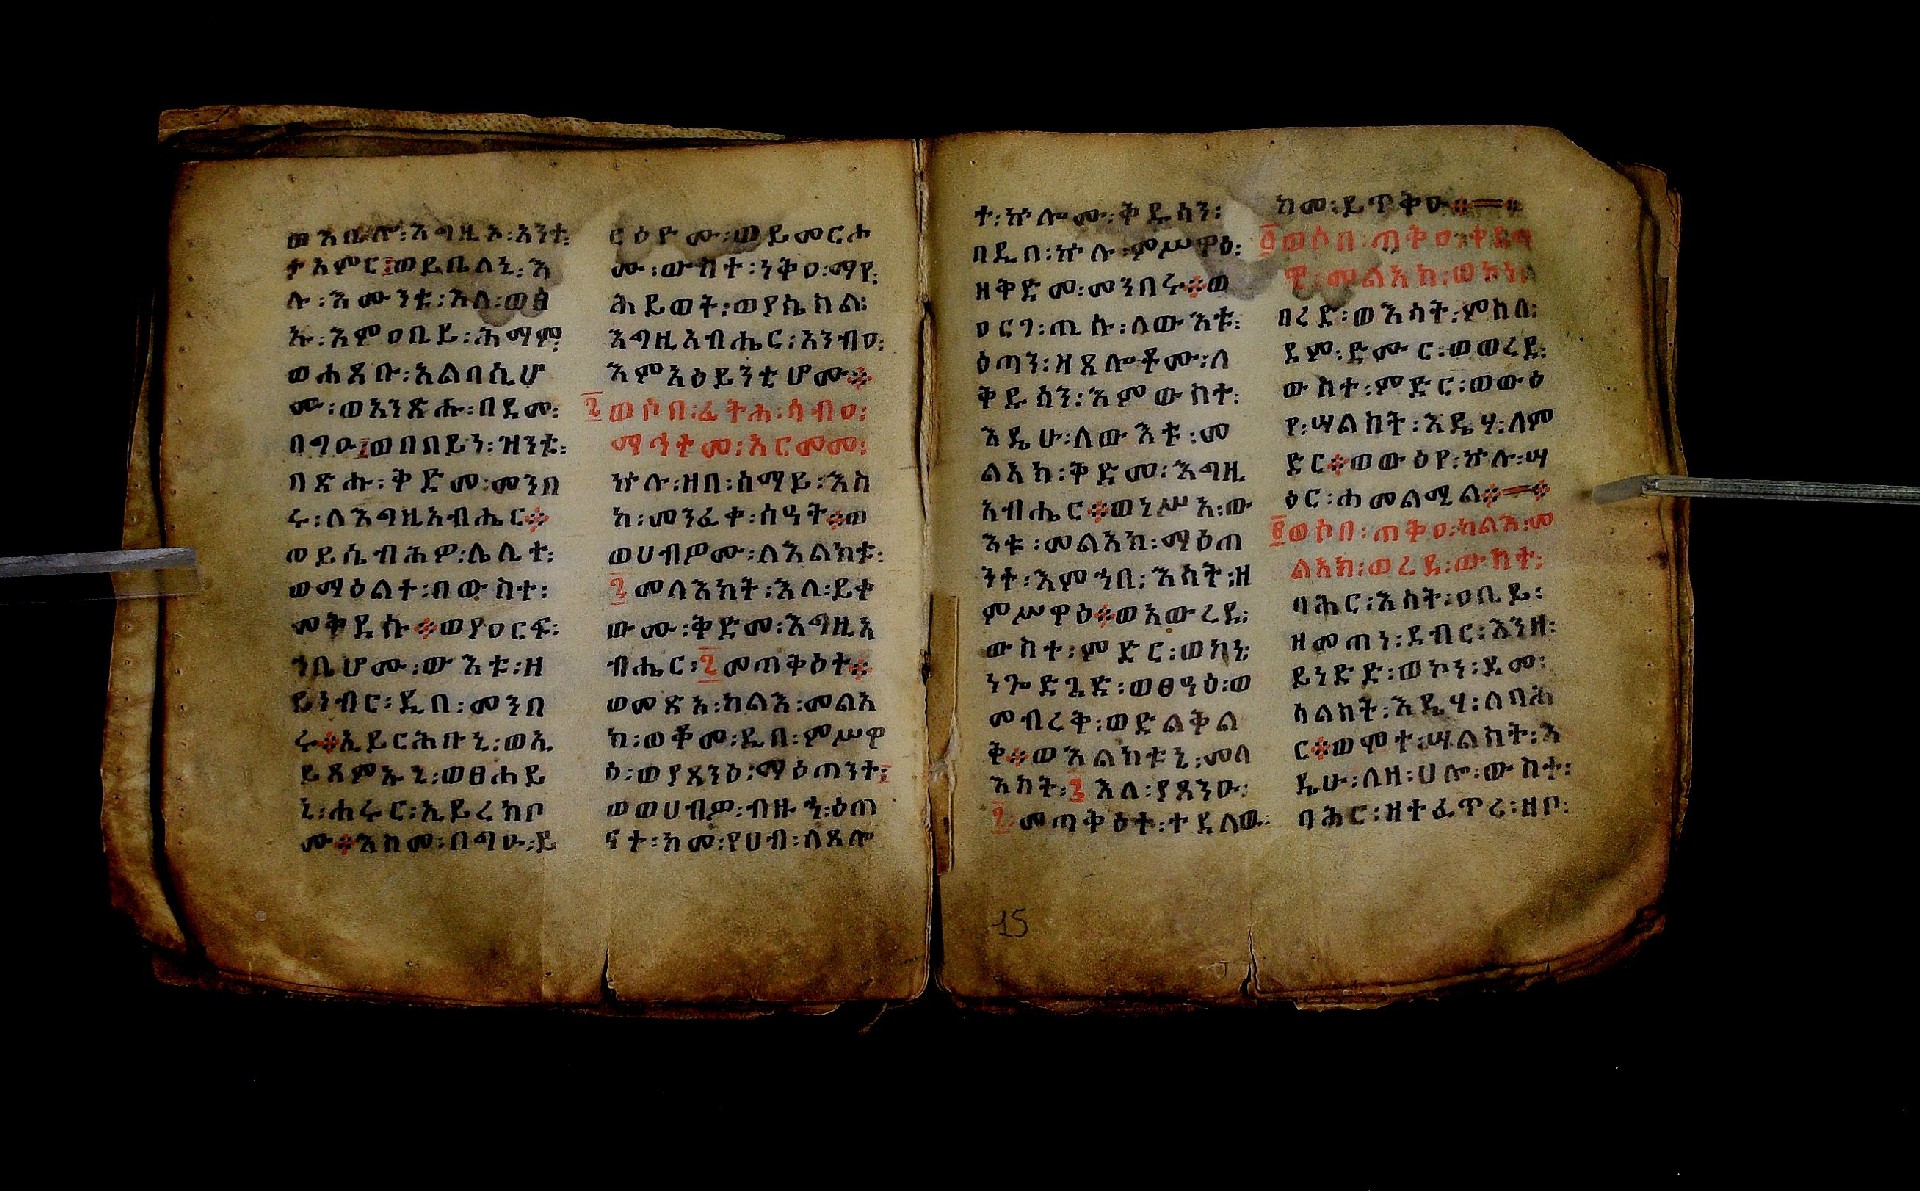 ወእቤሎ፡እግዚኦ፡አንተ፡
ተአምር፤ወይቤለኒ፡እ
ሉ፡እሙንቱ፡እለ፡ወፅ
ኡ፡እምዐቢይ፡ሕማም፡
ወሐጸቡ፡አልባሲሆ
ሙ፡ወአንጽሑ፡በደመ፡
በግዑ፤ወበበይን፡ዝንቱ፡
በጽሑ፡ቅድመ፡መንበ
ሩ፡ለእግዚአብሔር፨
ወይሴብሕዎ፡ሌሊተ፡
ወማዕልተ፡በውስተ፡
መቅደሱ፨ወያዐርፍ፡
ኀቤሆሙ፡ውእቱ፡ዘ
ይነብር፡ዲበ፡መንበ
ሩ፨ኢይርሕቡኒ፡ወኢ
ይጸምኡኒ፡ወፀሐይ
ኒ፡ሐሩር፡ኢይረክቦ
ሙ፨እስመ፡በግዑ፡ይ
ርዕዮሙ፡ወይመርሖ
ሙ፡ውስተ፡ነቅዐ፡ማየ፡
ሕይወት፡ወያሴስል፡
እግዚአብሔር፡አንብዐ፡
እምአዕይንቲሆሙ፨
፯ወሶበ፡ፈትሐ፡ሳብዐ፡
ማኅተመ፡አርመመ፡
ኵሉ፡ዘበ፡ሰማይ፡እስ
ከ፡መንፈቀ፡ሰዓት፨ወ
ወሀብዎሙ፡ለእልክቱ፡
፯መላእክት፡እለ፡ይቀ
ውሙ፡ቅድመ፡እግዚአ
ብሔር፡፯መጣቅዕት፨
ወመጽአ፡ካልእ፡መልአ
ክ፡ወቆመ፡ዲበ፡ምሥዋ
ዕ፡ወያጸንዕ፡ማዕጠንተ፤
ወወሀብዎ፡ብዙኀ፡ዕጣ
ናተ፡ከመ፡የሀብ፡ለጸሎ
ተ፡ኵሎሙ፡ቅዱሳን፡
በዲበ፡ኵሉ፡ምሥዋዕ፡
ዘቅድመ፡መንበሩ፨ወ
ዐርገ፡ጢሱ፡ለውእቱ፡
ዕጣን፡ዘጸሎቶሙ፡ለ
ቅዱሳን፡እምውስተ፡
እዴሁ፡ለውእቱ፡መ
ልአክ፡ቅድመ፡እግዚ
አብሔር፨ወነሥአ፡ው
እቱ፡መልአክ፡ማዕጠ
ንተ፡እምኀበ፡እሳት፡ዘ
ምሥዋዕ፨ወአውረደ፡
ውስተ፡ምድር፡ወኮነ፡
ነጐድጓድ፡ወፀዓዕ፡ወ
መብረቅ፡ወድልቅል
ቅ፨ወእልክቱኒ፡መላ
እክት፡፯እለ፡ያጸንዑ፡
፯መጣቅዕተ፡ተደለዉ፡
ከመ፡ይጥቅዑ፨
፩ወሶበ፡ጣቅዐ፡ቀዳማ
ዊ፡መልአክ፡ወኮነ፡
በረድ፡ወእሳት፡ምስለ፡
ደም፡ድሙር፡ወወረደ፡
ውስተ፡ምድር፡ወውዕ
የ፡ሣልስት፡እዴሃ፡ለም
ድር፨ወውዕየ፡ኵሉ፡ሣ
ዕር፡ሐመልሚል፨
፪ወሶበ፡ጠቅዐ፡ካልእ፡መ
ልአክ፡ወረደ፡ውስተ፡
ባሕር፡እሳት፡ዐቢይ፡
ዘመጠነ፡ደብር፡እንዘ፡
ይነድድ፡ወኮነ፡ደመ፡
ሳልስት፡እዴሃ፡ለባሕ
ር፨ወሞተ፡ሣልስት፡እ
ዴሁ፡ለዘ፡ሀሎ፡ውስተ፡
ባሕር፡ዘተፈጥረ፡ዘቦ፡
15